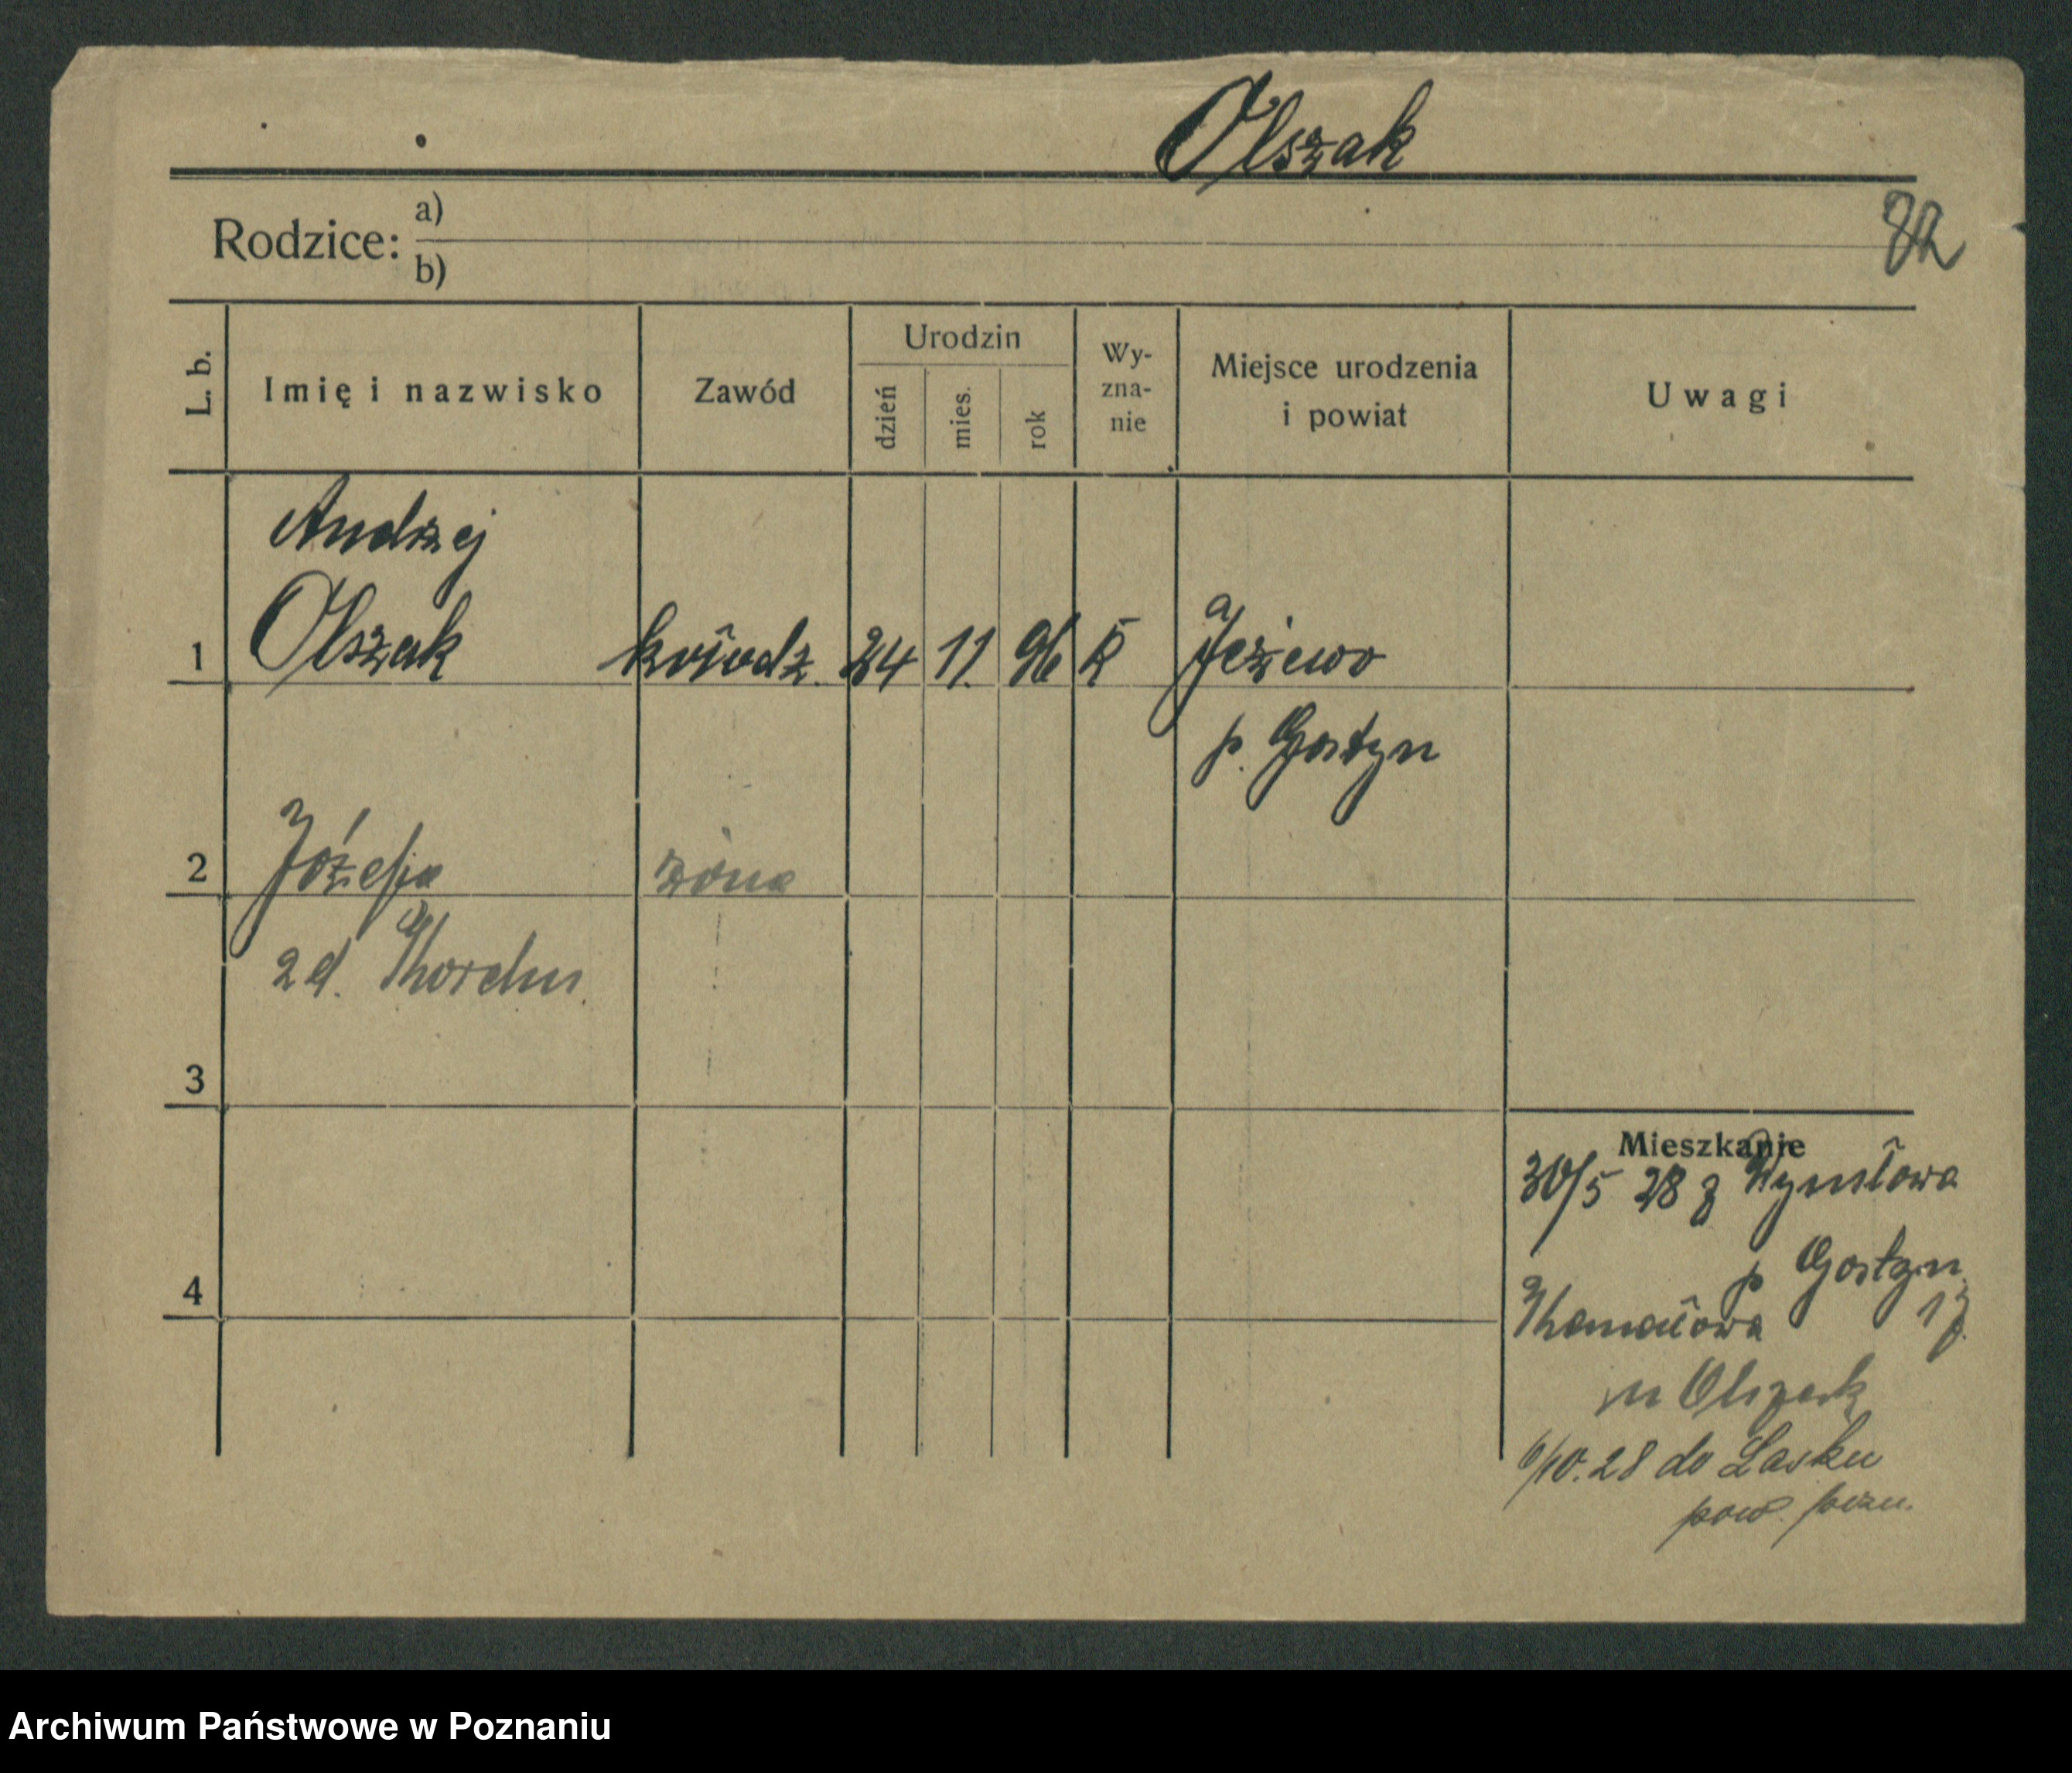 Olszak
Rodzice: a)
b)
82
L. b.
Imię i nazwisko
Zawód
Urodzin
dzień
mies.
rok
Wy-
zna-
nie
Miejsce urodzenia
i powiat
Uwagi
Andrzej
1 Olszak kołodz. 24 11. 96 K Jeżewo
p. Gostyn
2 Józefa żona
zd.
3
Mieszkanie
30/5 28 z
p Gostyn
4
17
m Olszak
6/10. 28 do Lasku
pow. pozn.
Archiwum Państwowe w Poznaniu